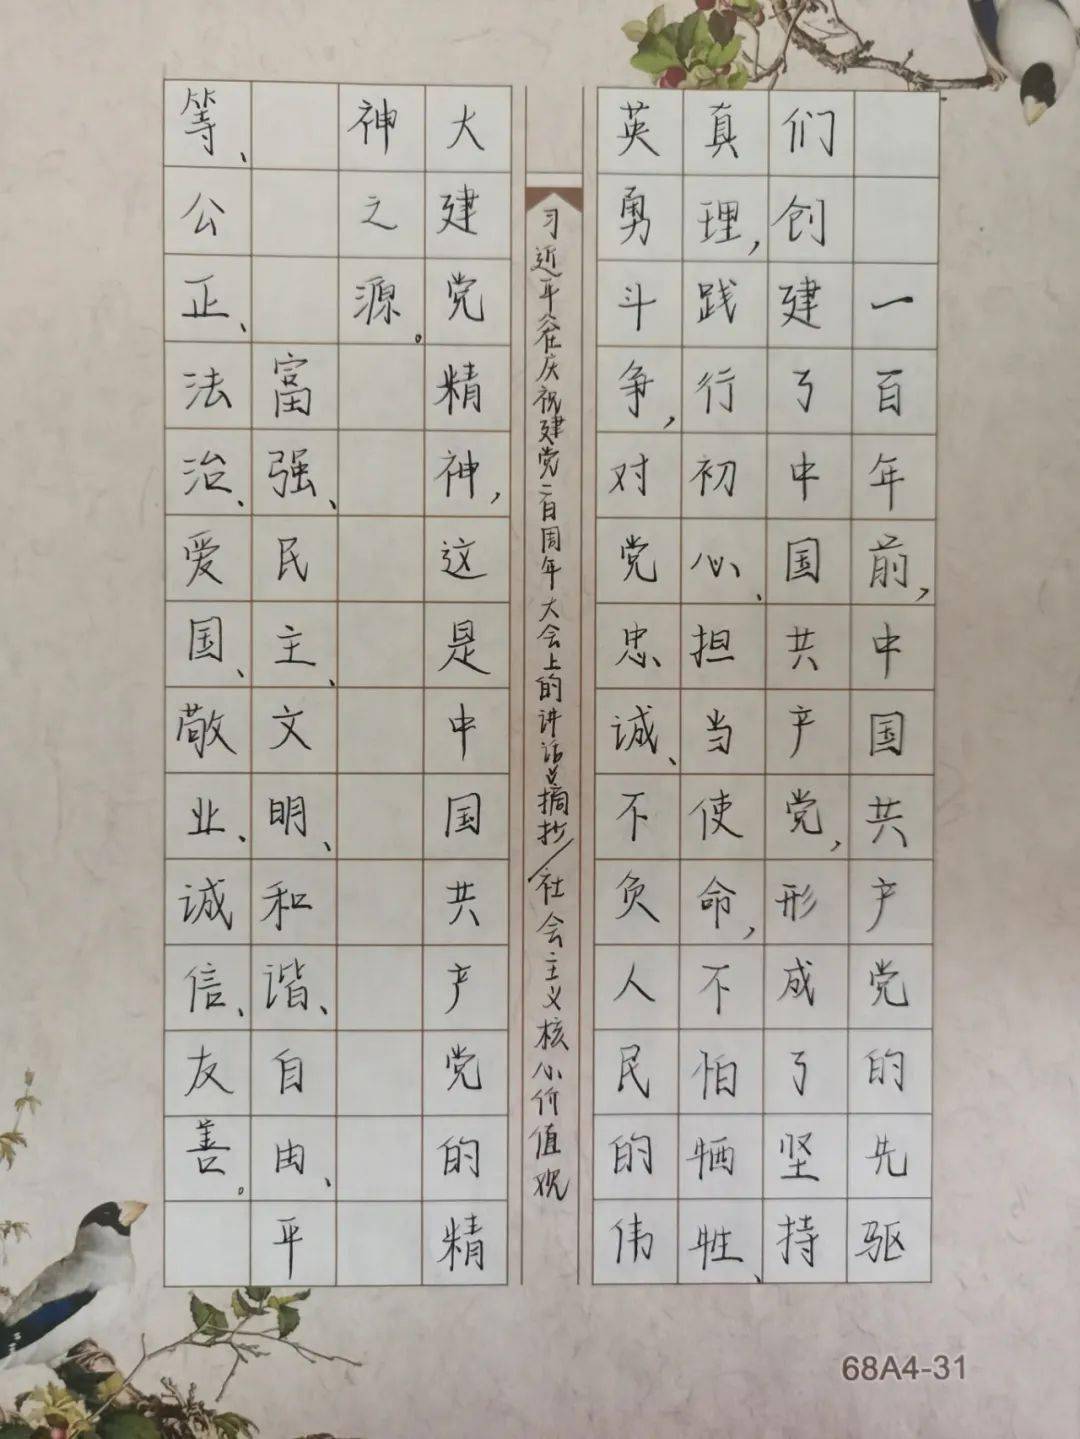 一百年前，中国共产党的先驱
们创建了中国共产党，形成了坚持
真理，践行初心、担当使命，不怕牺牲、
英勇斗争，对党忠诚、不负人民的伟
习近平在庆祝建党一百周年大会上的讲话摘抄/社会主义核心价值观
大建党精神，这是中国共产党的精
神之源。
富强、民主、文明、和谐、自由、平
等、公正、法治、爱国、敬业、诚信、友善。
68A4-31